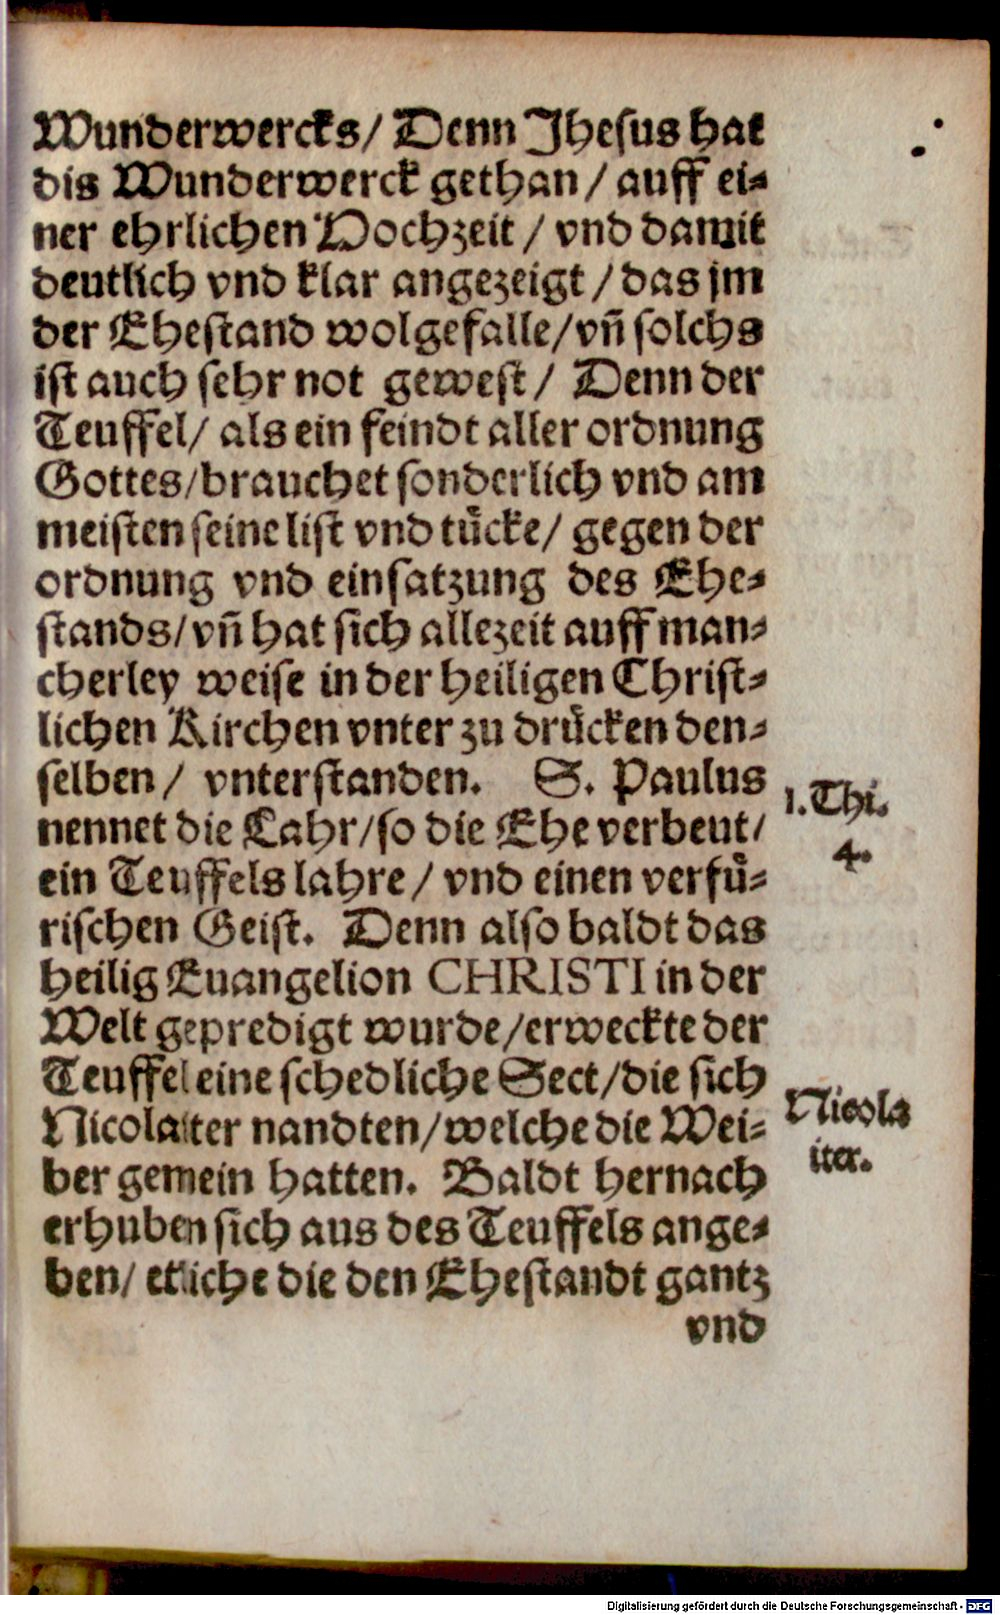 Wunderwercks/ Denn Jhesus hat
dis Wunderwerck gethan / auff ei⸗
ner ehrlichen Hochzeit / vnd damit
deutlich vnd klar angezeigt / das jm
der Ehestand wolgefalle/vn̄ solchs
ist auch sehr not gewest / Denn der
Teuffel/ als ein feindt aller ordnung
Gottes/brauchet sonderlich vnd am
meisten seine list vnd tuͤcke/ gegen der
ordnung vnd einsatzung des Ehe⸗
stands/vn̄ hat sich allezeit auff man⸗
cherley weise in der heiligen Christ⸗
lichen Kirchen vnter zu druͤcken den⸗
selben / vnterstanden. S. Paulus
nennet die Lahr/so die Ehe verbeut/
1. Thi.
4.
ein Teuffels lahre / vnd einen verfuͤ⸗
rischen Geist. Denn also baldt das
heilig Euangelion CHRISTI in der
Welt gepredigt wurde/erweckte der
Teuffel eine schedliche Sect/die sich
Nicolaiter nandten/welche die Wei⸗
Nicola
iter.
ber gemein hatten. Baldt hernach
erhuben sich aus des Teuffels ange⸗
ben/ etliche die den Ehestandt gantz
vnd
Digitalisierung gefördert durch die Deutsche Forschungsgemeinschaft - DFG